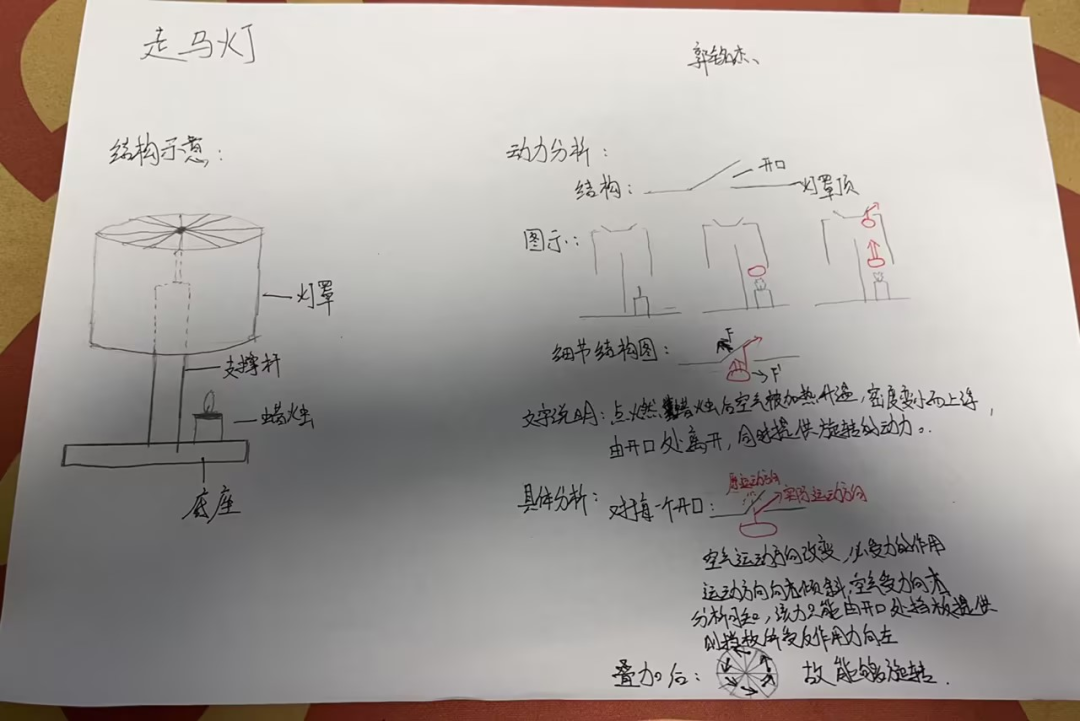 走马灯
郭铭杰、
结构示意：
灯罩
支撑杆
蜡烛
底座
动力分析：
结构：
开口
灯罩顶
图示：
细节结构图：
F
F'
文字说明：点燃蜡烛后空气被加热升温，密度变小而上浮，
由开口处离开，同时提供旋转的动力。
具体分析：对每一个开口：
原运动方向
实际运动方向
空气运动方向改变，必受力的作用
运动方向向右倾斜，空气受力向右
分析可知，该力只能由开口处挡板提供
则挡板所受反作用力向左
叠加后：
故能够旋转.